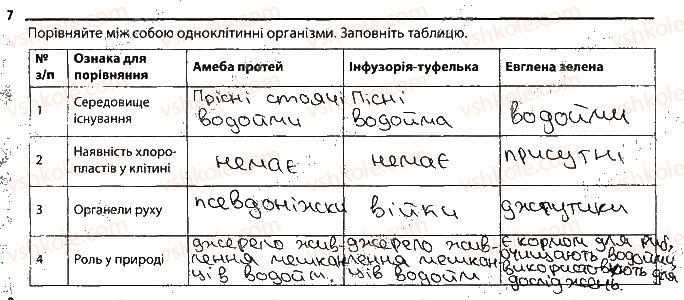 7
Порівняйте між собою одноклітинні організми. Заповніть таблицю.
№ з/п
Ознака для порівняння
Амеба протей
Інфузорія-туфелька
Евглена зелена
1
Середовище існування
Прісні стоячі
водойми
Пісні
водойма
водойми
2
Наявність хлоро-
пластів у клітині
немає
немає
присутні
3
Органели руху
псевдоніжки
війки
джгутики
4
Роль у природі
джерело жив-
лення мешкан
ців водойм.
джерело жив-
лення мешкан
ців водойм
є кормом для риб,
очищають водойми
використовують для
досліджень.
vshkole.com